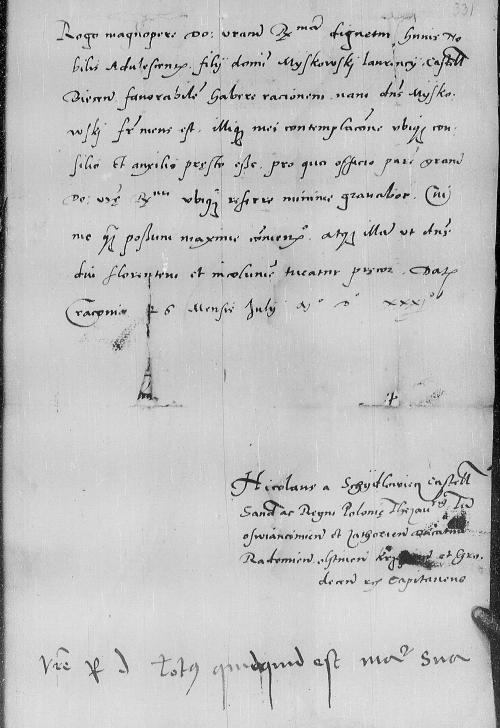 331
Rogo magnopere Do: vram Rmam dignetur huius No
bilis Adulescentis filij domini Myskowskj laurencij Castell
Biecen favorabilem habere racionem nam dns Mysko
wskj fr meus est illiq mei contemplacone vbiq con
silio et auxilio presto esse pro quo officio pari gram
Do: vre Rme vbiq referre minime gravabor Cui
me q possum maxime comen atq illa vt dns
diu florentem et incolumem tueatur precor Dat
Cracovie 26 Mensis Julij Ao Do xxxjo
Nicolaus a Schydlowiecz Castell
Sand ac Regni Polonie Thezaurs
oswianczimien et zathorien ducatuu
Radomien olstinen et Gro
decen Capitaneus
Vre R D totus quidquid est manu sua